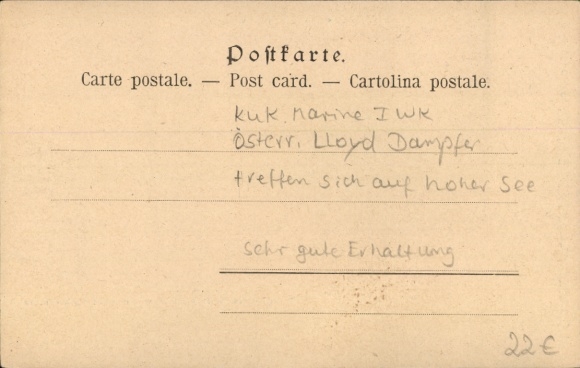 Postkarte.
Carte postale. — Post card. — Cartolina postale.
KuK Marine I WK
Österr. Lloyd Dampfer
treffen sich auf hoher See
sehr gute Erhaltung
22 €